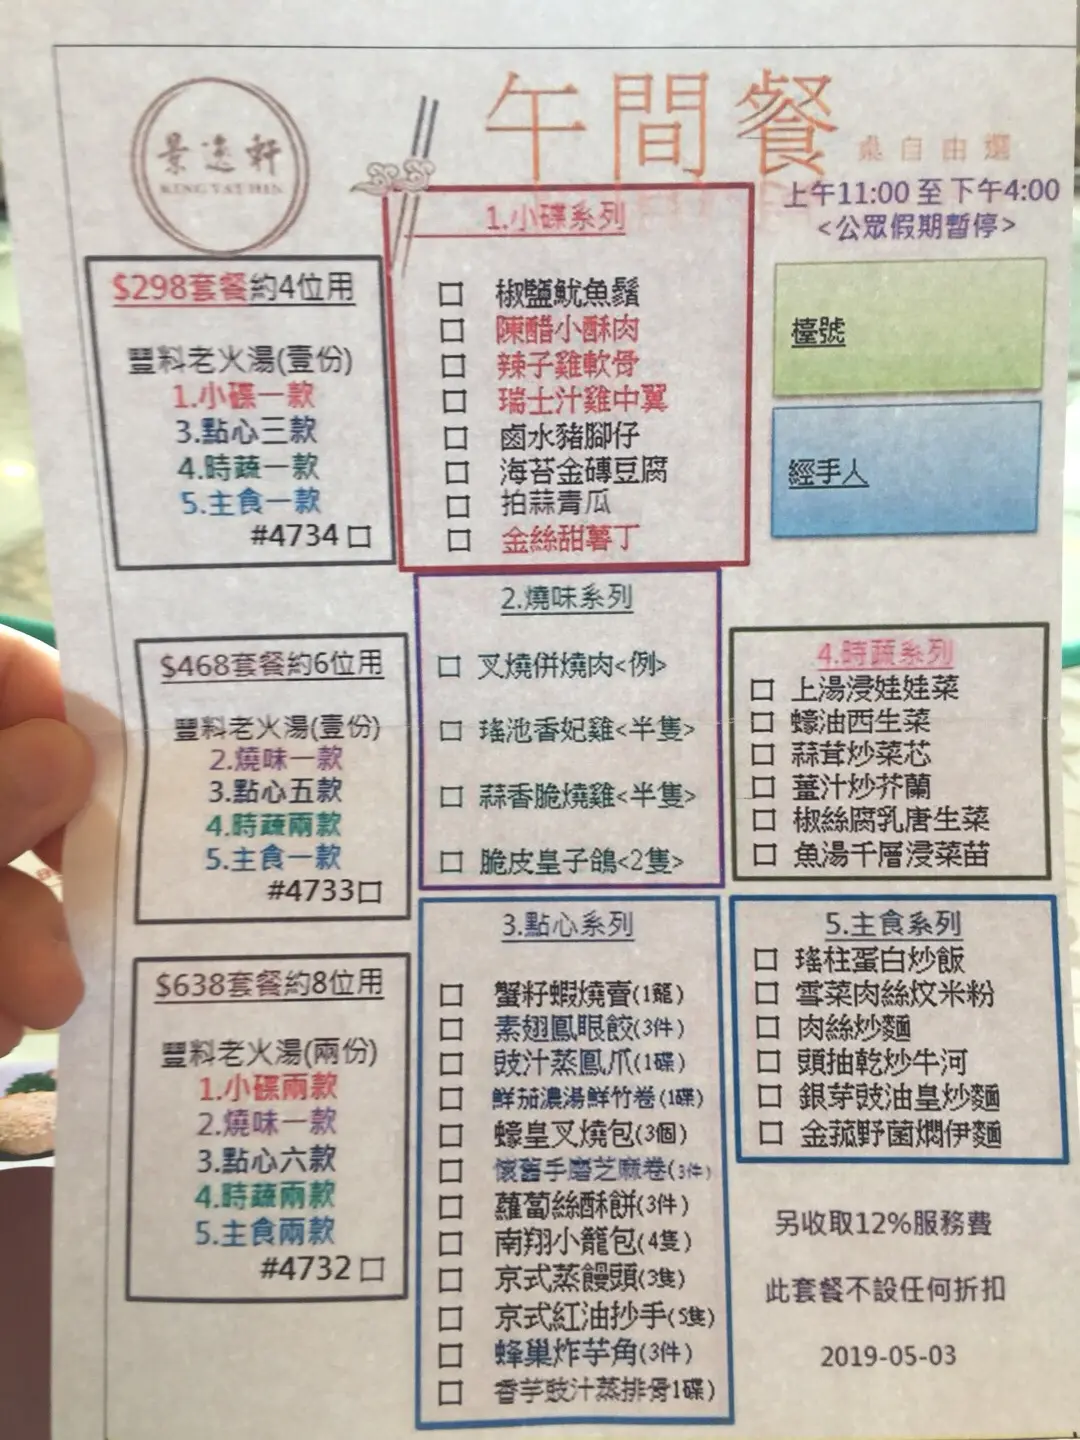 景逸軒
KING YAT HIN
午間餐
桌自由選
上午11:00 至 下午4:00
<公眾假期暫停>
檯號
經手人
$298套餐約4位用
豐料老火湯(壹份)
1.小碟一款
3.點心三款
4.時蔬一款
5.主食一款
#4734口
$468套餐約6位用
豐料老火湯(壹份)
2.燒味一款
3.點心五款
4.時蔬兩款
5.主食一款
#4733口
$638套餐約8位用
豐料老火湯(兩份)
1.小碟兩款
2.燒味一款
3.點心六款
4.時蔬兩款
5.主食兩款
#4732口
1.小碟系列
口 椒鹽魷魚鬚
口 陳醋小酥肉
口 辣子雞軟骨
口 瑞士汁雞中翼
口 鹵水豬腳仔
口 海苔金磚豆腐
口 拍蒜青瓜
口 金絲甜薯丁
2.燒味系列
口 叉燒併燒肉<例>
口 瑤池香妃雞<半隻>
口 蒜香脆燒雞<半隻>
口 脆皮皇子鴿<2隻>
3.點心系列
口 蟹籽蝦燒賣(1籠)
口 素翅鳳眼餃(3件)
口 豉汁蒸鳳爪(1碟)
口 鮮茄濃湯鮮竹卷(1碟)
口 蠔皇叉燒包(3個)
口 懷舊手磨芝麻卷(3件)
口 蘿蔔絲酥餅(3件)
口 南翔小籠包(4隻)
口 京式蒸饅頭(3隻)
口 京式紅油抄手(5隻)
口 蜂巢炸芋角(3件)
口 香芋豉汁蒸排骨1碟)
4.時蔬系列
口 上湯浸娃娃菜
口 蠔油西生菜
口 蒜茸炒菜芯
口 薑汁炒芥蘭
口 椒絲腐乳唐生菜
口 魚湯千層浸菜苗
5.主食系列
口 瑤柱蛋白炒飯
口 雪菜肉絲炆米粉
口 肉絲炒麵
口 頭抽乾炒牛河
口 銀芽豉油皇炒麵
口 金菰野菌燜伊麵
另收取12%服務費
此套餐不設任何折扣
2019-05-03